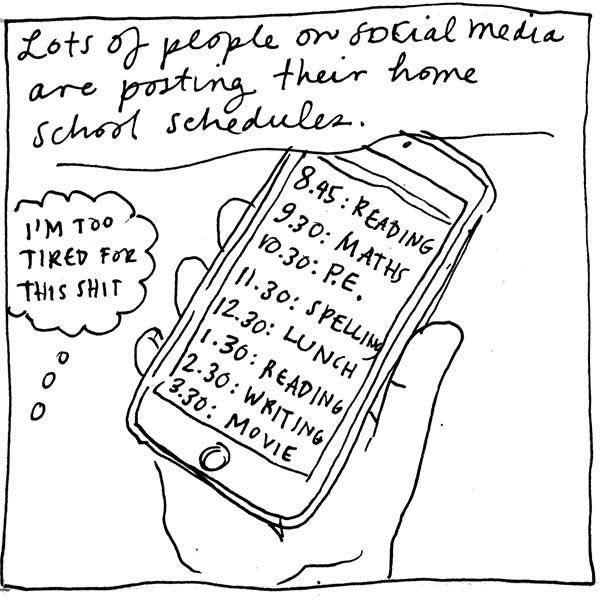 Lots of people on social media
are posting their home
school schedules.
I'M TOO
TIRED FOR
THIS SHIT
8.45: READING
9.30: MATHS
10.30: P.E.
11.30: SPELLING
12.30: LUNCH
1.30: READING
2.30: WRITING
3.30: MOVIE